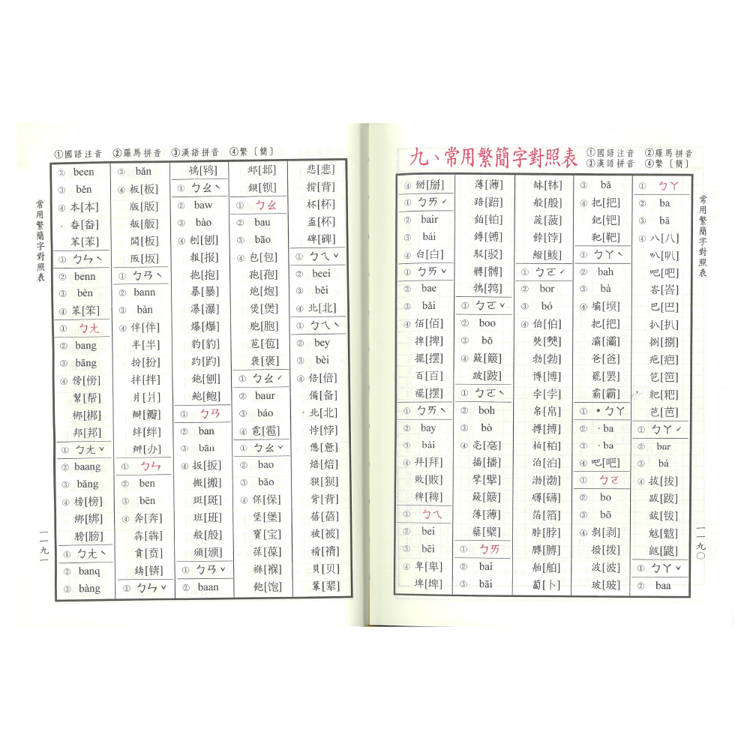 九、常用繁簡字對照表
①國語注音 ②羅馬拼音
③漢語拼音 ④繁〔簡〕
常用繁簡字對照表
一一九〇
① ㄅㄚ
② ba
③ bā
④ 八[八]
叭[叭]
吧[吧]
峇[峇]
巴[巴]
扒[扒]
捌[捌]
疤[疤]
笆[笆]
粑[粑]
芭[芭]
① ㄅㄚˊ
② bar
③ bá
④ 拔[拔]
跋[跋]
鈸[钹]
魃[魃]
鼥[鼥]
① ㄅㄚˇ
② baa
③ bǎ
④ 把[把]
鈀[钯]
靶[靶]
① ㄅㄚˋ
② bah
③ bà
④ 壩[坝]
把[把]
灞[灞]
爸[爸]
罷[罢]
耙[耙]
霸[霸]
① ˙ㄅㄚ
② ba
③ ba
④ 吧[吧]
① ㄅㄛ
② bo
③ bō
④ 剝[剥]
撥[拨]
波[波]
玻[玻]
缽[钵]
般[般]
菠[菠]
餑[饽]
① ㄅㄛˊ
② bor
③ bó
④ 伯[伯]
僰[僰]
勃[勃]
博[博]
帛[帛]
搏[搏]
柏[柏]
泊[泊]
渤[渤]
礴[礴]
箔[箔]
脖[脖]
膊[膊]
舶[舶]
蔔[卜]
薄[薄]
鉑[铂]
鎛[镈]
駁[驳]
髆[髆]
鵓[鹁]
① ㄅㄛˇ
② boo
③ bǒ
④ 簸[簸]
跛[跛]
① ㄅㄛˋ
② boh
③ bò
④ 亳[亳]
播[播]
擘[擘]
簸[簸]
薄[薄]
① ㄅㄞ
② bai
③ bāi
④ 掰[掰]
① ㄅㄞˊ
② bair
③ bái
④ 白[白]
① ㄅㄞˇ
② bae
③ bǎi
④ 佰[佰]
捭[捭]
擺[摆]
百[百]
① ㄅㄞˋ
② bay
③ bài
④ 拜[拜]
敗[败]
稗[稗]
① ㄅㄟ
② bei
③ bēi
④ 卑[卑]
埤[埤]
①國語注音 ②羅馬拼音 ③漢語拼音 ④繁〔簡〕
常用繁簡字對照表
一一九一
悲[悲]
揹[背]
杯[杯]
盃[杯]
碑[碑]
① ㄅㄟˇ
② beei
③ běi
④ 北[北]
① ㄅㄟˋ
② bey
③ bèi
④ 倍[倍]
備[备]
北[北]
悖[悖]
憊[惫]
焙[焙]
狽[狈]
背[背]
蓓[蓓]
被[被]
褙[褙]
貝[贝]
輩[辈]
邶[邶]
鋇[钡]
① ㄅㄠ
② bau
③ bāo
④ 包[包]
炮[炮]
煲[煲]
胞[胞]
苞[苞]
褒[褒]
① ㄅㄠˊ
② baur
③ báo
④ 雹[雹]
① ㄅㄠˇ
② bao
③ bǎo
④ 保[保]
堡[堡]
寶[宝]
葆[葆]
褓[褓]
飽[饱]
鴇[鸨]
① ㄅㄠˋ
② baw
③ bào
④ 刨[刨]
報[报]
抱[抱]
暴[暴]
瀑[瀑]
爆[爆]
豹[豹]
趵[趵]
鉋[刨]
鮑[鲍]
① ㄅㄢ
② ban
③ bān
④ 扳[扳]
搬[搬]
斑[斑]
班[班]
般[般]
頒[颁]
① ㄅㄢˇ
② baan
③ bǎn
④ 板[板]
版[版]
舨[舨]
闆[板]
阪[坂]
① ㄅㄢˋ
② bann
③ bàn
④ 伴[伴]
半[半]
扮[扮]
拌[拌]
爿[爿]
瓣[瓣]
絆[绊]
辦[办]
① ㄅㄣ
② ben
③ bēn
④ 奔[奔]
犇[犇]
賁[贲]
錛[锛]
① ㄅㄣˇ
② been
③ běn
④ 本[本]
畚[畚]
苯[苯]
① ㄅㄣˋ
② benn
③ bèn
④ 笨[笨]
① ㄅㄤ
② bang
③ bāng
④ 傍[傍]
幫[帮]
梆[梆]
邦[邦]
① ㄅㄤˇ
② baang
③ bǎng
④ 榜[榜]
綁[绑]
膀[膀]
① ㄅㄤˋ
② banq
③ bàng